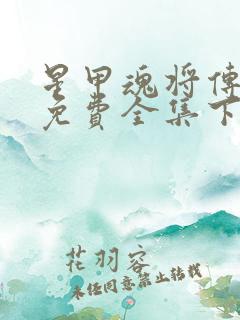 星甲魂将傳
免費全集下
花羽容
未经同意禁止转载